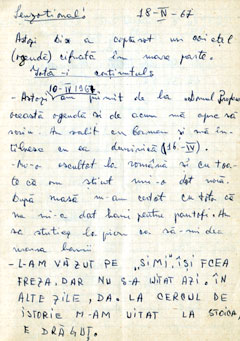 Senzațional! 18-IV-67
Astăzi Bix a capturat un caiețel
(agendă) cifrată în mare parte.
Iată-i conținutul:
10-IV 1967
- Astăzi am primit de la
această agendă și de acum mă apuc să
scriu. Am vorbit cu Carmen și mă
cu ea duminică (16.-IV).
- M-a ascultat la română și cu toa-
te că am știut mi-a dat notă.
După masă m-am certat cu tata că
nu mi-a dat bani pentru pantofi. Am
să stau la pian ca să-mi dea
mama banii
- L-AM VĂZUT PE „SIMI”, ÎȘI FCEA
FREZA, DAR NU S-A UITAT AZI. ÎN
ALTE ZILE, DA. LA CERCUL DE
ISTORIE M-AM UITAT LA STOICA,
E DRĂGUȚ.